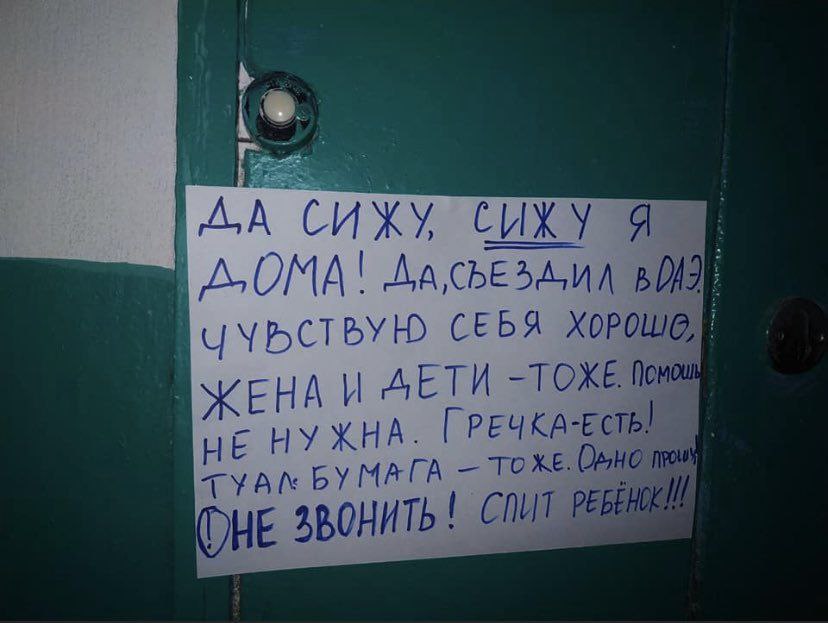 ДА СИЖУ, СИЖУ Я
ДОМА! ДА, СЪЕЗДИЛ В ОАЭ.
ЧУВСТВУЮ СЕБЯ ХОРОШО,
ЖЕНА И ДЕТИ – ТОЖЕ. ПОМОЩЬ
НЕ НУЖНА. ГРЕЧКА-ЕСТЬ!
ТУАЛ. БУМАГА – ТОЖЕ. ОДНО ПРОШУ
! НЕ ЗВОНИТЬ! СПИТ РЕБЁНОК!!!